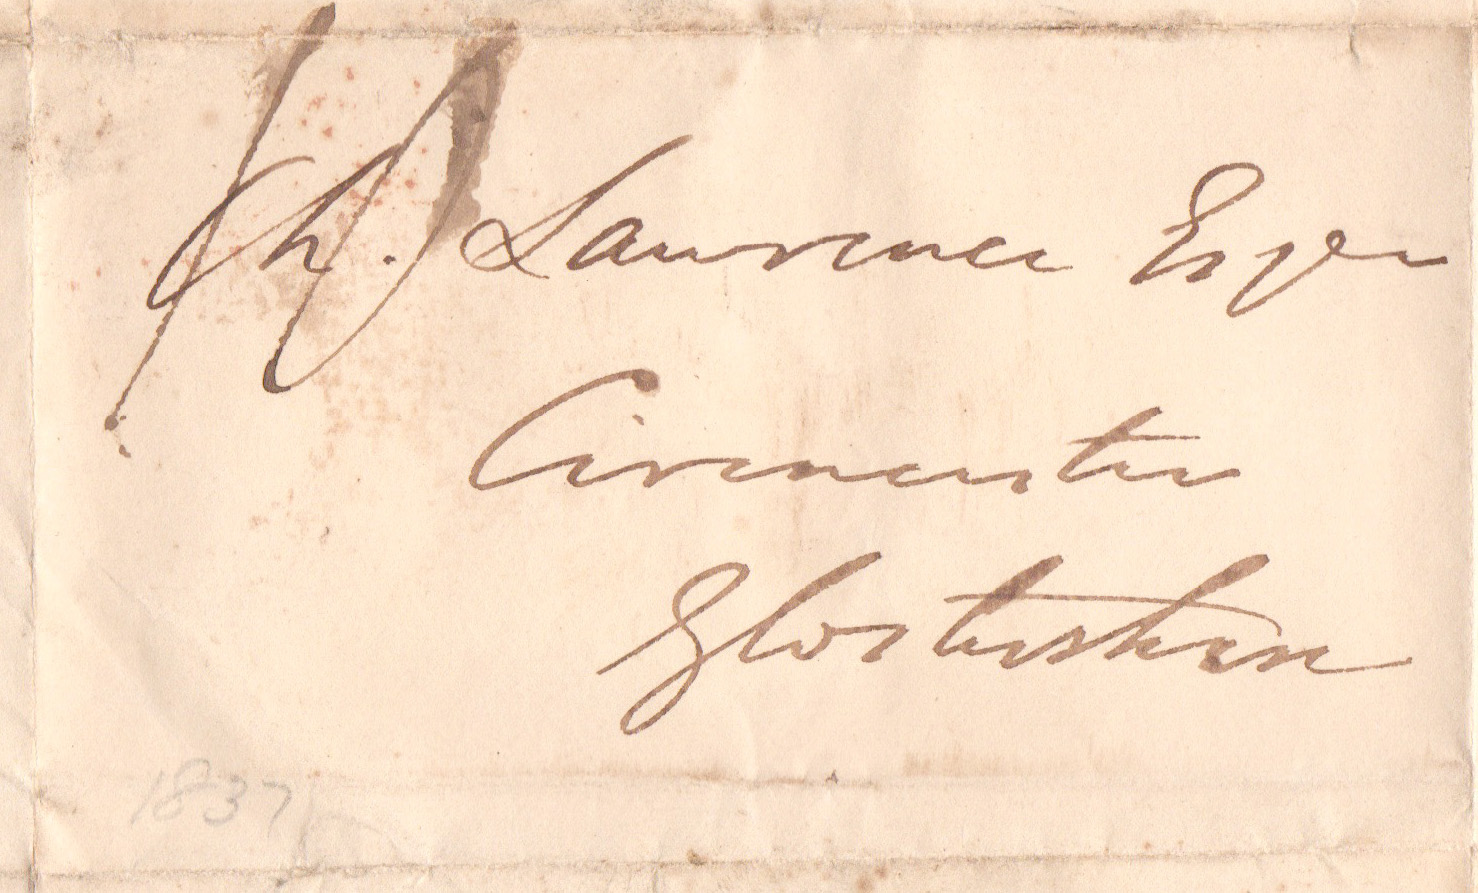 Ch. Lawrence Esqre
Cirencester
Glostershire
1837